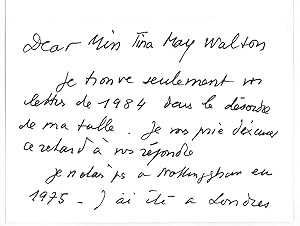 Dear Miss Tina May Walton
Je trouve seulement vos
lettres de 1984 dans le désordre
de ma table. Je vous prie d'excuser
ce retard à vous répondre
je n'étais pas à Nottingham en
1975 - J'ai été à Londres